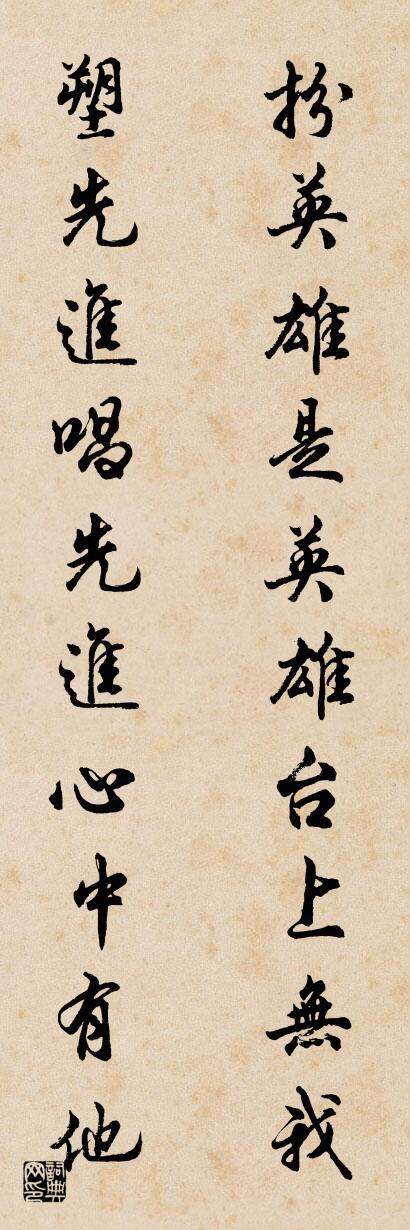 扮英雄是英雄台上無我
塑先進唱先進心中有他